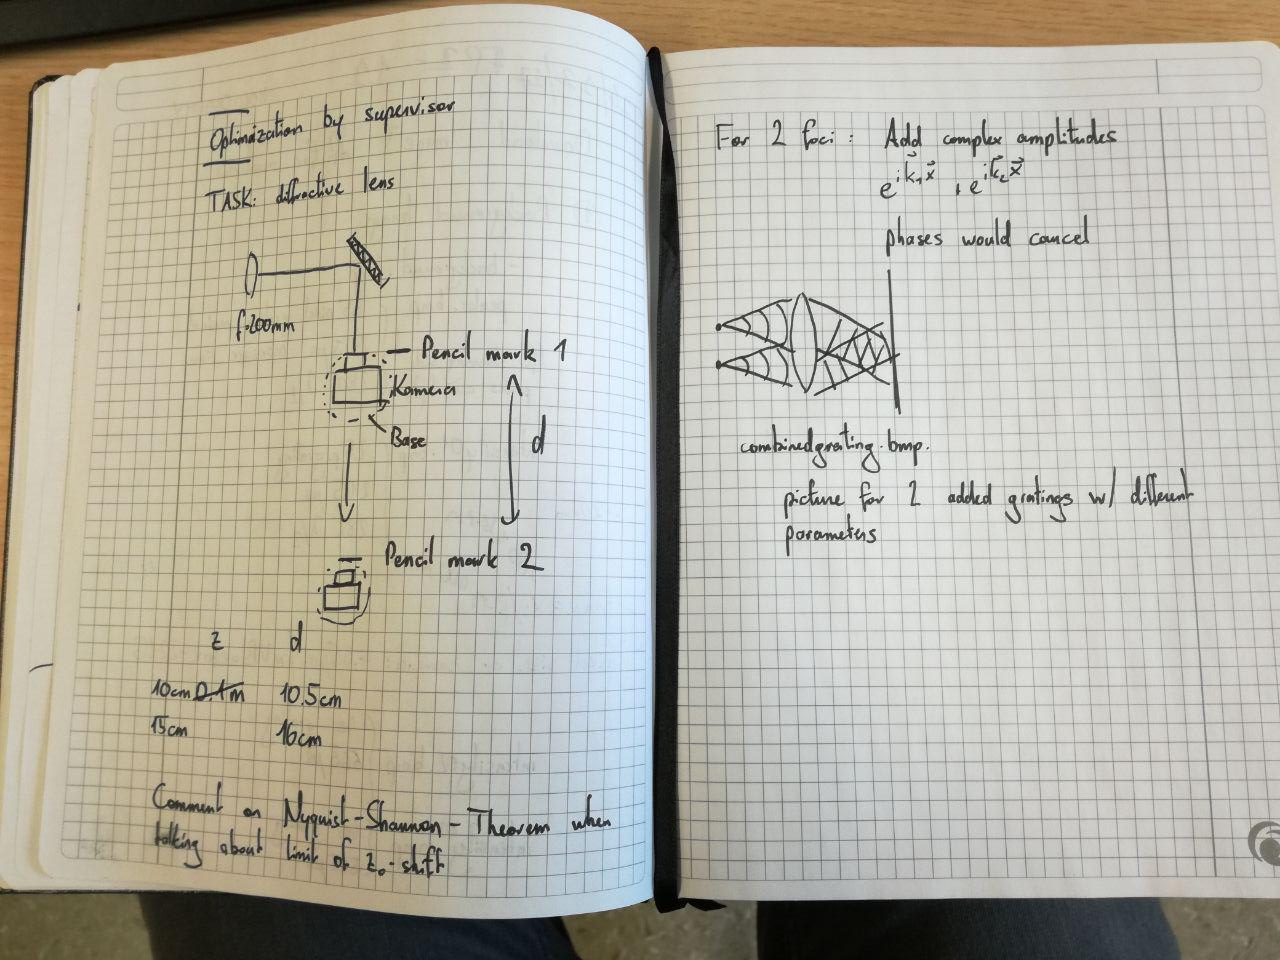 Optimization by supervisor
TASK: diffractive lens
f=200mm
Pencil mark 1
Kamera
Base
d
Pencil mark 2
z d
10cm 0.1m 10.5cm
15cm 16cm
Comment on Nyquist-Shannon-Theorem when
talking about limit of z₀-shift
For 2 foci: Add complex amplitudes
e^{i\vec{k}_1\vec{x}} + e^{i\vec{k}_2\vec{x}}
phases would cancel
combinedgrating.bmp.
picture for 2 added gratings w/ different
parameters